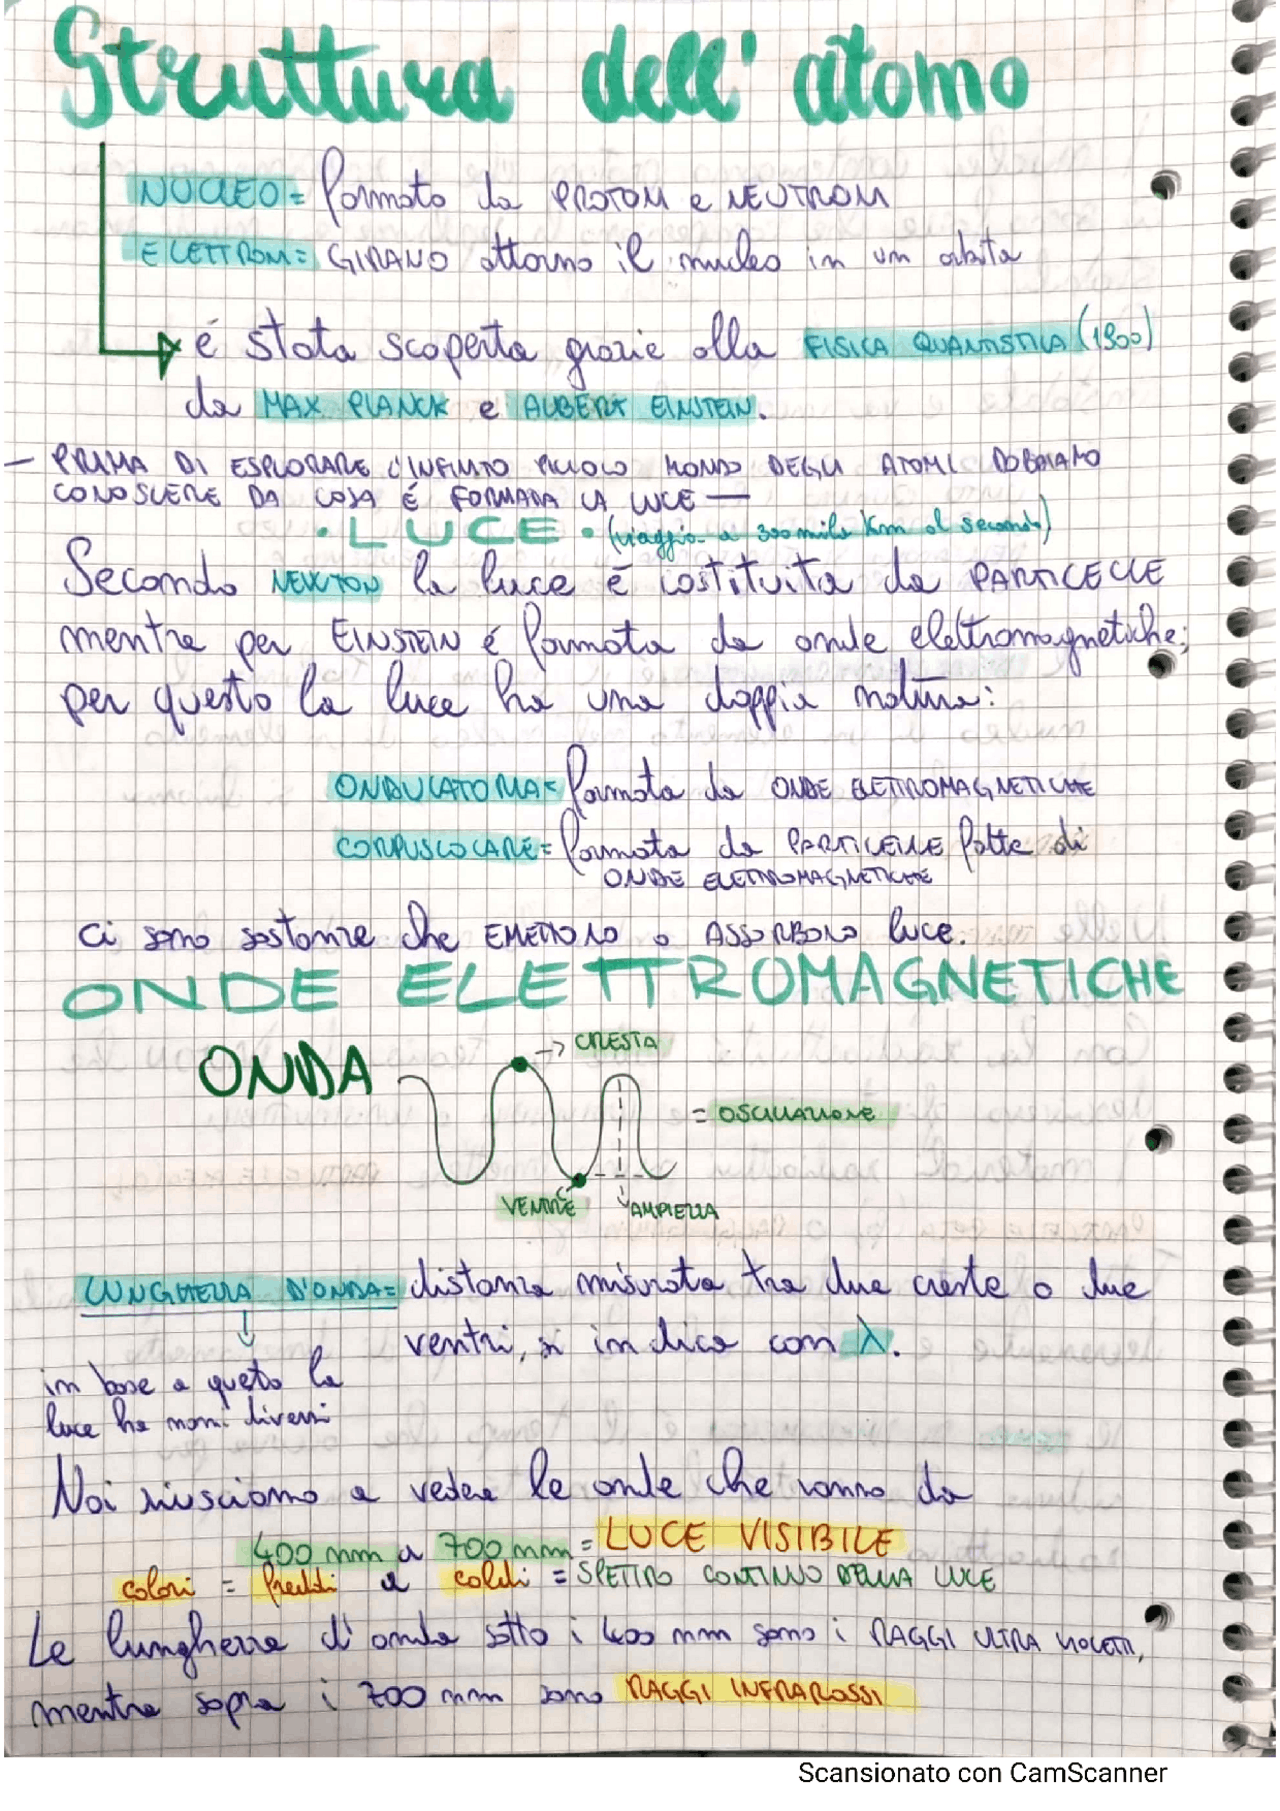 Struttura dell'atomo
NUCLEO = formato da PROTONI e NEUTRONI
ELETTRONI = GIRANO attorno il nucleo in un orbita
é stata scoperta grazie alla FISICA QUANTISTICA (1900)
da MAX PLANCK e ALBERT EINSTEIN.
— PRIMA DI ESPLORARE L'INFINITO PICCOLO MONDO DEGLI ATOMI DOBBIAMO
CONOSCERE DA COSA É FORMATA LA LUCE —
• LUCE • (viaggia a 300 mila Km al secondo)
Secondo NEWTON la luce é costituita da PARTICELLE
mentre per EINSTEIN é formata da onde elettromagnetiche;
per questo la luce ha una doppia natura:
ONDULATORIA = formata da ONDE ELETTROMAGNETICHE
CORPUSCOLARE = formata da PARTICELLE fatte di
ONDE ELETTROMAGNETICHE
ci sono sostanze che EMETTONO o ASSORBONO luce.
ONDE ELETTROMAGNETICHE
ONDA → CRESTA
= OSCILLAZIONE
VENTRE AMPIEZZA
LUNGHEZZA D'ONDA = distanza misurata tra due creste o due
ventri, si indica con λ.
in base a questo la
luce ha nomi diversi
Noi riusciamo a vedere le onde che vanno da
400 nm a 700 nm = LUCE VISIBILE
colori = freddi a caldi = SPETTRO CONTINUO DELLA LUCE
Le lunghezze d'onda sotto i 400 nm sono i RAGGI ULTRA VIOLETTI,
mentre sopra i 700 nm sono RAGGI INFRAROSSI
Scansionato con CamScanner